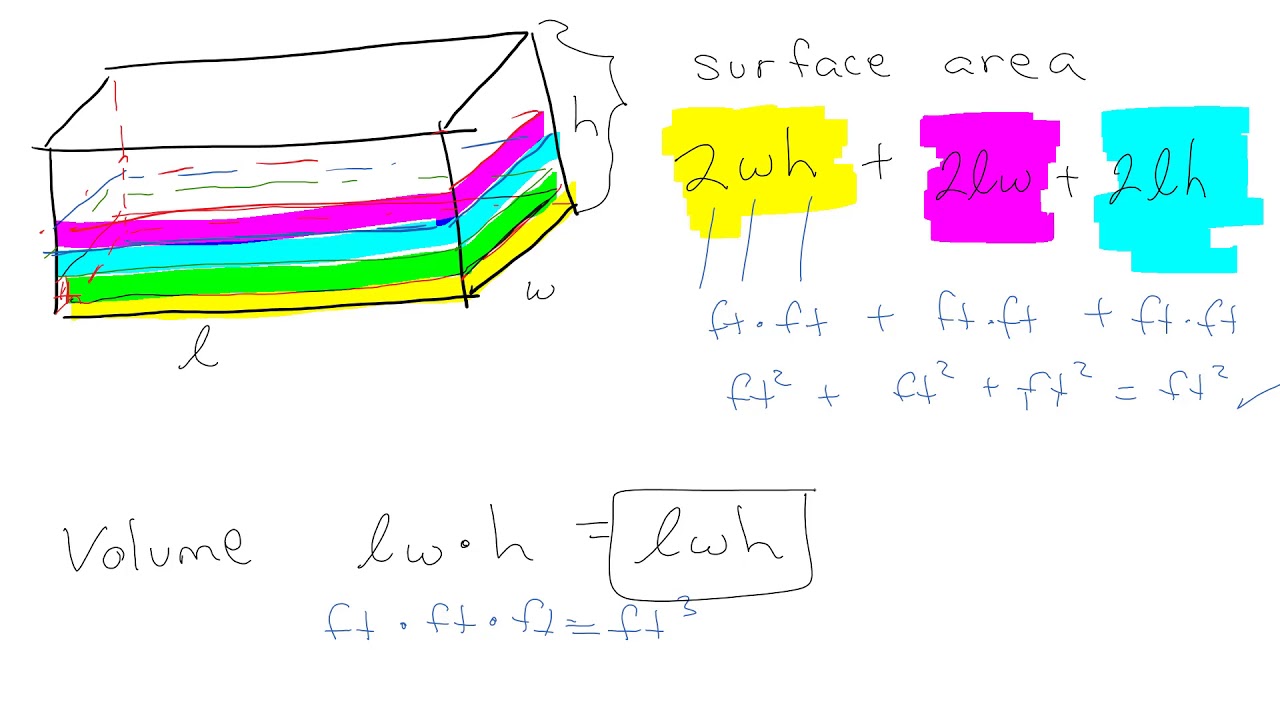 surface area
h
2wh + 2lw + 2lh
w
l
ft · ft + ft · ft + ft · ft
ft² + ft² + ft² = ft² ✓
Volume lw · h = lwh
ft · ft · ft = ft³